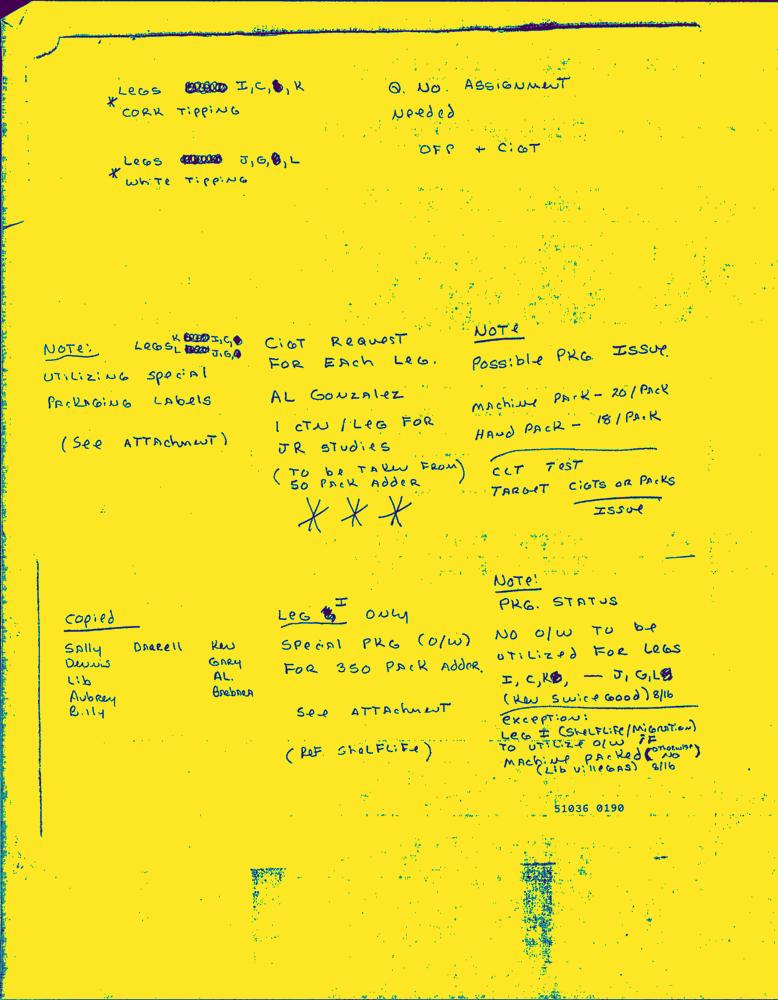 LEGS I, C, K
* CORK TIPPING
LEGS J, G, L
* WHITE TIPPING
Q. NO. ASSIGNMENT
NEEDED
OFP + CIGT
NOTE: LEGS K I, C,
L J, G,
UTILIZING SPECIAL
PACKAGING LABELS
(SEE ATTACHMENT)
CIGT REQUEST
FOR EACH LEG.
AL GONZALEZ
1 CTN / LEG FOR
JR STUDIES
(TO BE TAKEN FROM)
50 PACK ADDER
* * *
NOTE
POSSIBLE PKG ISSUE.
MACHINE PACK - 20/PACK
HAND PACK - 18/PACK
CLT TEST
TARGET CIGTS OR PACKS
ISSUE
COPIED
SALLY DARRELL KEN
DENNIS GARY
LIB AL.
AUBREY BARBARA
BILLY
LEG I ONLY
SPECIAL PKG (O/W)
FOR 350 PACK ADDER.
SEE ATTACHMENT
(REF SHELFLIFE)
NOTE:
PKG. STATUS
NO O/W TO BE
UTILIZED FOR LEGS
I, C, K, — J, G, L
(KEN SWICEGOOD) 8/16
EXCEPTION:
LEG I (SHELFLIFE/MIGRATION)
TO UTILIZE O/W IF
MACHINE PACKED (OTHERWISE NO)
(LIB VILLEGAS) 8/16
51036 0190